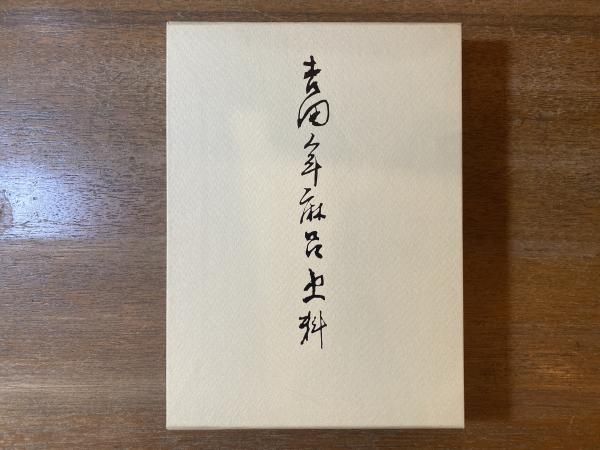 吉田年麻呂史料